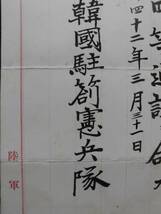 四十二年三月三十一日
韓國駐箚憲兵隊
陸軍